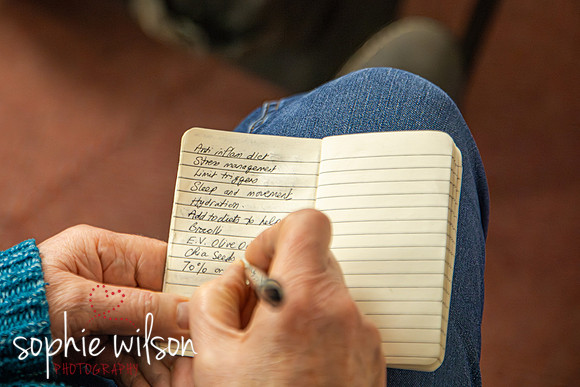 Anti inflam diet
Stress management
Limit triggers
Sleep and movement
Hydration.
Add to diets to help
Brocolli
E.V. Olive O
Chia Seeds
70% or
sophie wilson
PHOTOGRAPHY